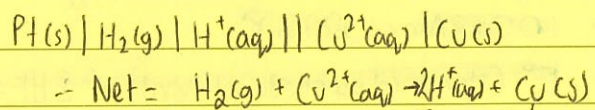 Pt(s) | H₂(g) | H⁺(aq) || Cu²⁺(aq) | Cu(s)
∴ Net = H₂(g) + Cu²⁺(aq) → 2H⁺(aq) + Cu(s)